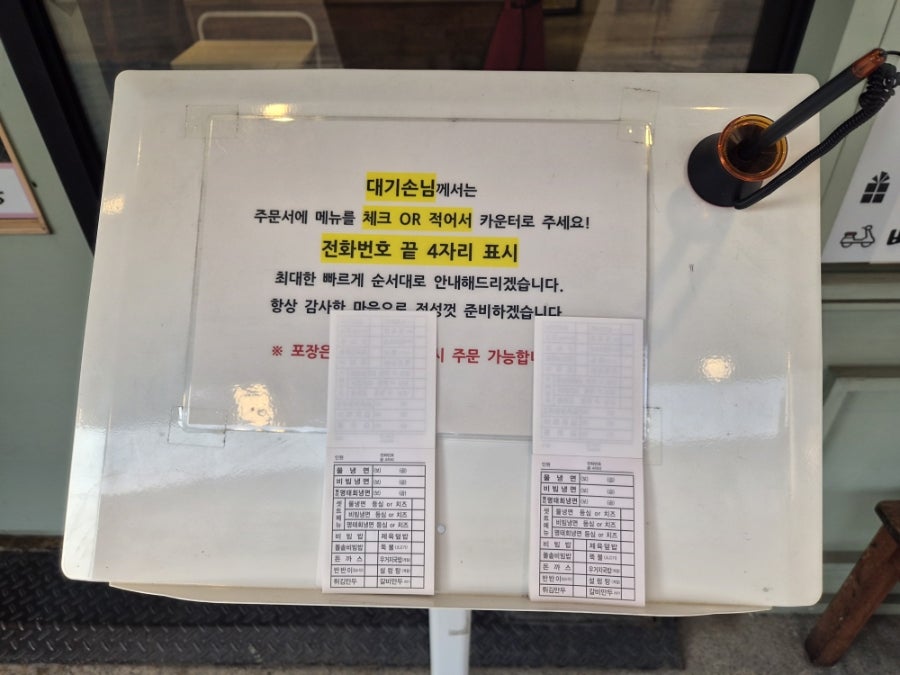 대기손님께서는
주문서에 메뉴를 체크 OR 적어서 카운터로 주세요!
전화번호 끝 4자리 표시
최대한 빠르게 순서대로 안내해드리겠습니다.
항상 감사한 마음으로 정성껏 준비하겠습니다
※ 포장은 시 주문 가능합니
인원 전화번호
끝 4자리
물 냉 면 (보) (곱)
비빔냉면 (보) (곱)
명태회냉면 (보) (곱)
세트메뉴
물냉면 등심 or 치즈
비빔냉면 등심 or 치즈
명태회냉면 등심 or 치즈
비 빔 밥 제육덮밥
돌솥비빔밥 뚝 불
돈 까 스 우거지국밥
반반이 설 렁 탕
튀김만두 갈비만두
인원 전화번호
끝 4자리
물 냉 면 (보) (곱)
비빔냉면 (보) (곱)
명태회냉면 (보) (곱)
세트메뉴
물냉면 등심 or 치즈
비빔냉면 등심 or 치즈
명태회냉면 등심 or 치즈
비 빔 밥 제육덮밥
돌솥비빔밥 뚝 불
돈 까 스 우거지국밥
반반이 설 렁 탕
튀김만두 갈비만두